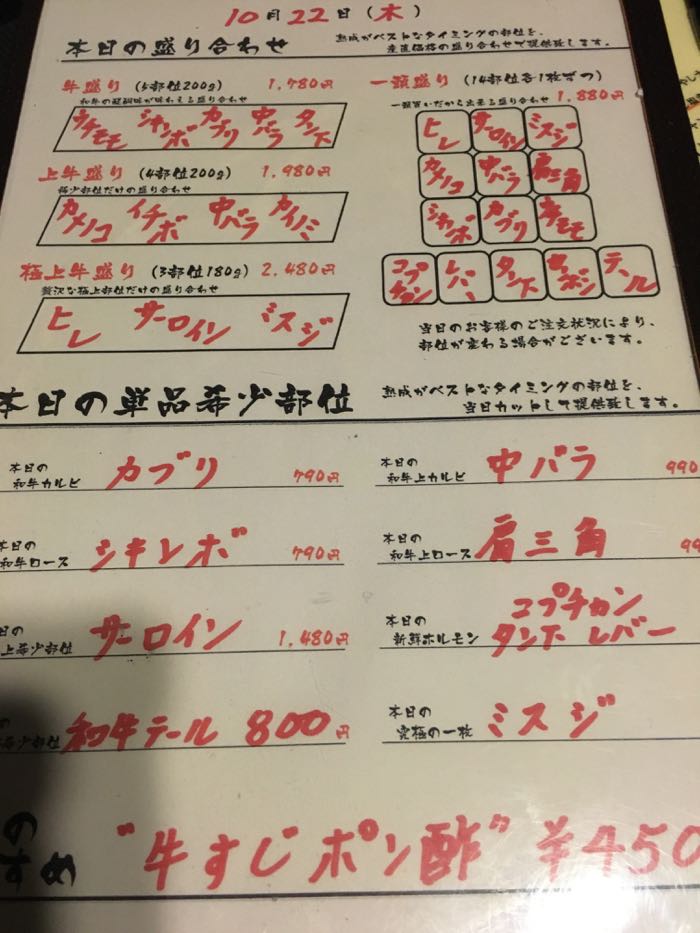 10月22日(木)
本日の盛り合わせ
熟成がベストなタイミングの部位を、
産直価格の盛り合わせで提供致します。
牛盛り (5部位200g) 1,780円
和牛の醍醐味が味わえる盛り合わせ
ウチモモ シキンボ カブリ 中バラ タン下
上牛盛り (4部位200g) 1,980円
希少部位だけの盛り合わせ
カメノコ イチボ 中バラ カイノミ
極上牛盛り (3部位180g) 2,480円
贅沢な極上部位だけの盛り合わせ
ヒレ サーロイン ミスジ
一頭盛り (14部位各1枚ずつ)
一頭買いだから出来る盛り合わせ 1,880円
ヒレ サーロイン ミスジ
カメノコ 中バラ 肩三角
シキンボ カブリ
コプチャン レバー タン下 テール
当日のお客様のご注文状況により、
部位が変わる場合がございます。
本日の単品希少部位
熟成がベストなタイミングの部位を、
当日カットして提供致します。
本日の
和牛カルビ カブリ 790円
本日の
和牛上カルビ 中バラ 990
本日の
和牛ロース シキンボ 790円
本日の
和牛上ロース 肩三角 99
の日
上希少部位 サーロイン 1,480円
本日の
新鮮ホルモン コプチャン
タン下 レバー
の
希少部位 和牛テール 800円
本日の
究極の一枚 ミスジ
のすめ "牛すじポン酢" ¥450